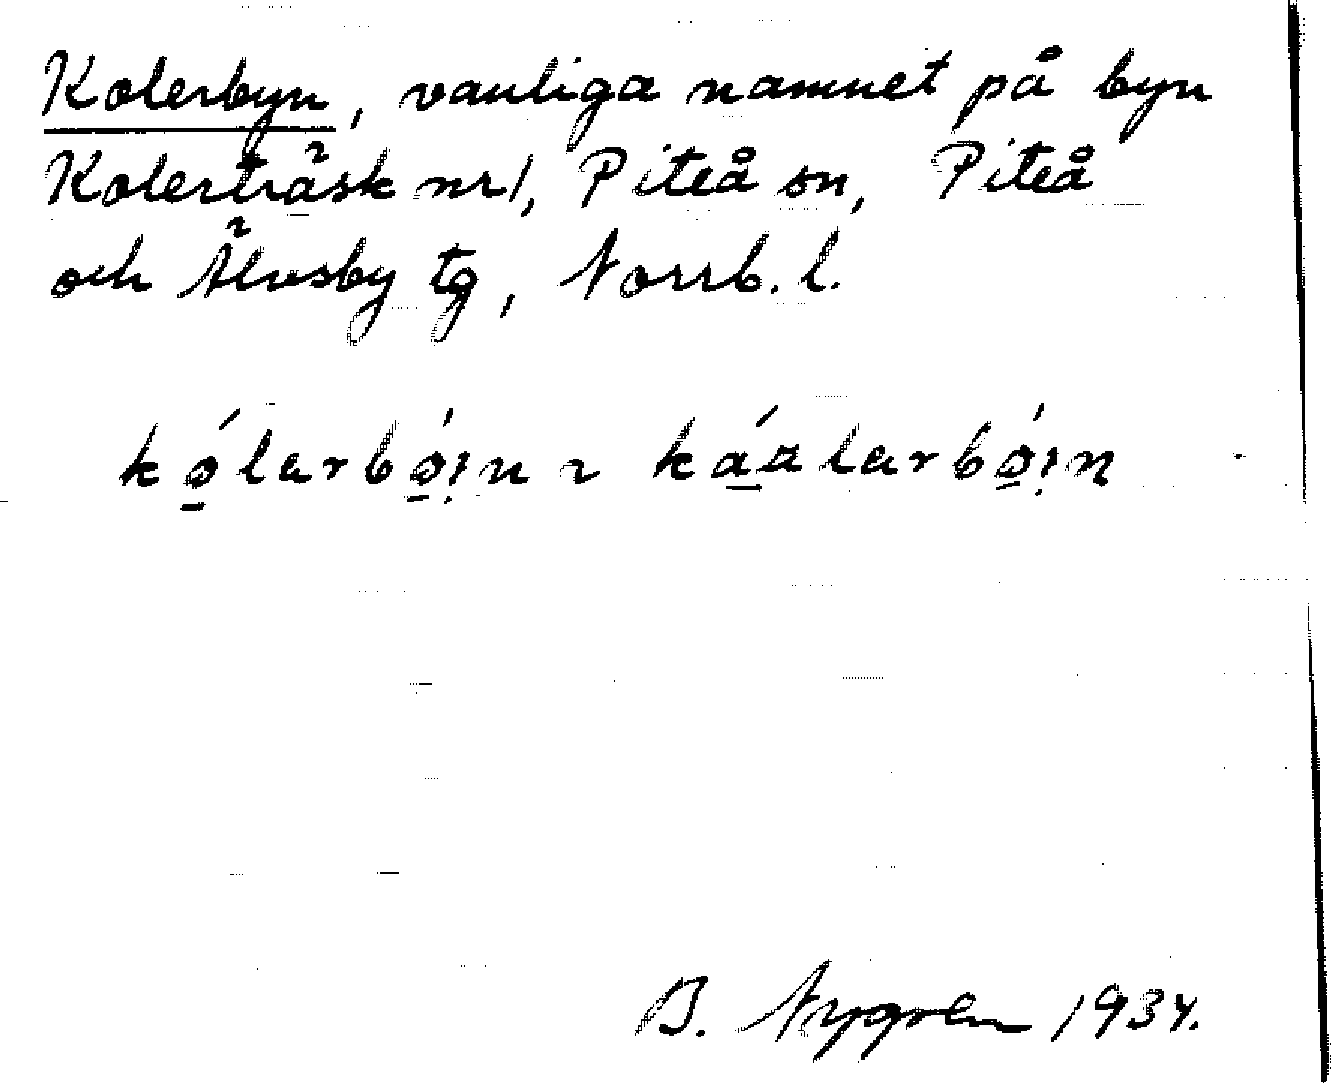 Kolerbyn, vanliga namnet på byn
Kolerträsk nr 1, Piteå sn, Piteå
och Älvsby tg, Norrb. l.
kǿlarbǿi̩n ~ káalarbǿi̩n
B. Nygren 1934.